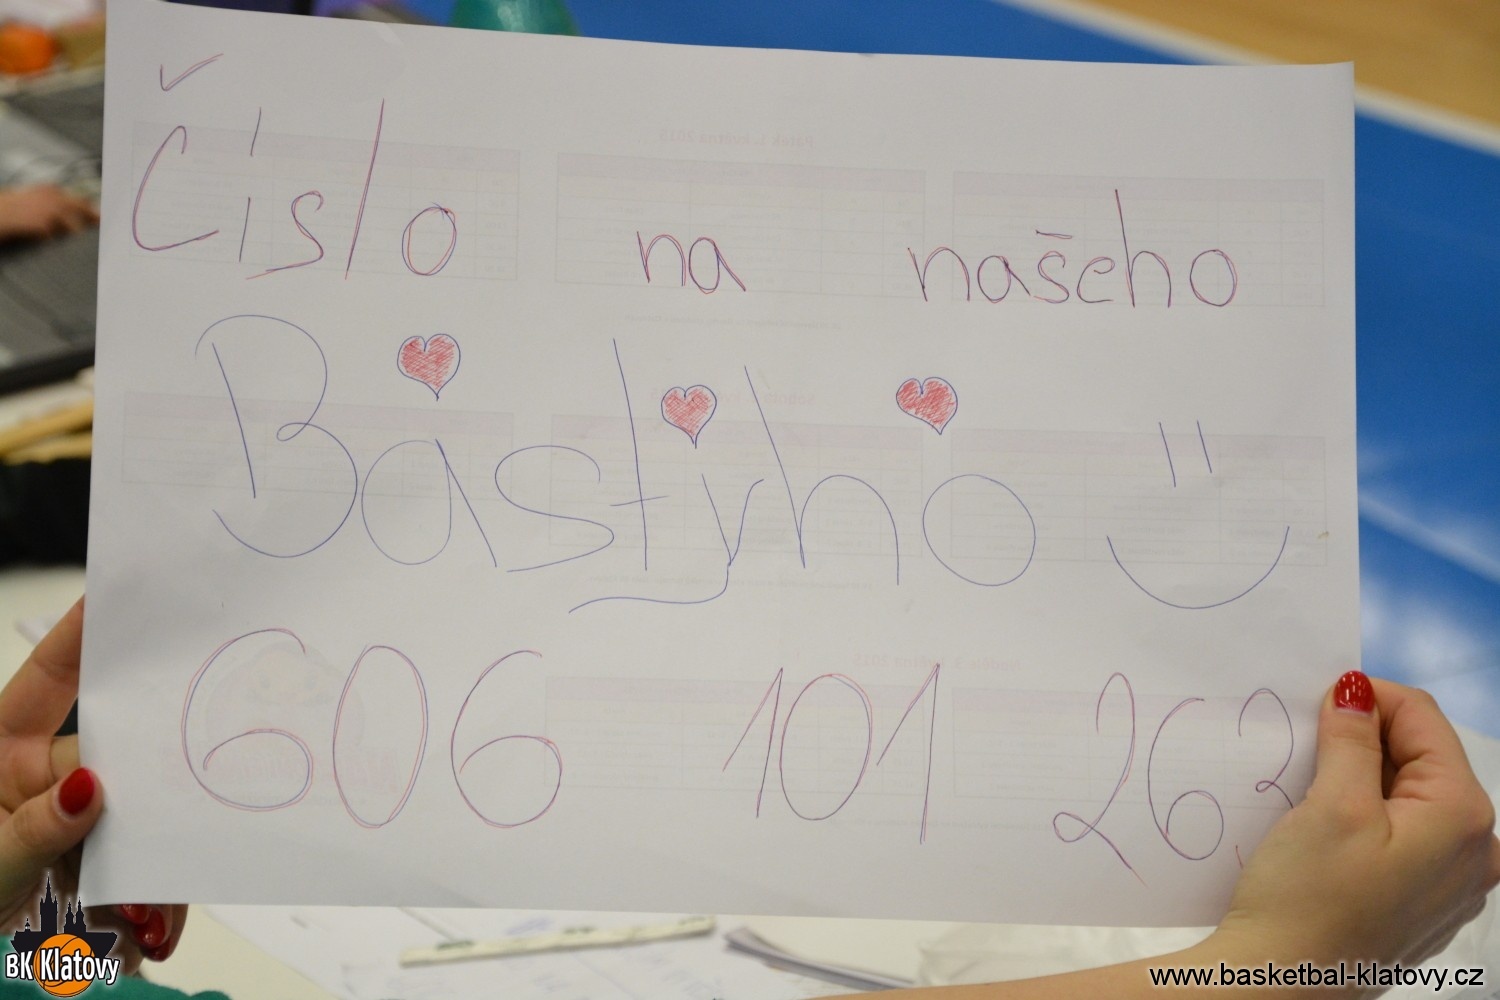 Číslo na našeho
Bástyho
606 101 263
BK Klatovy
www.basketbal-klatovy.cz